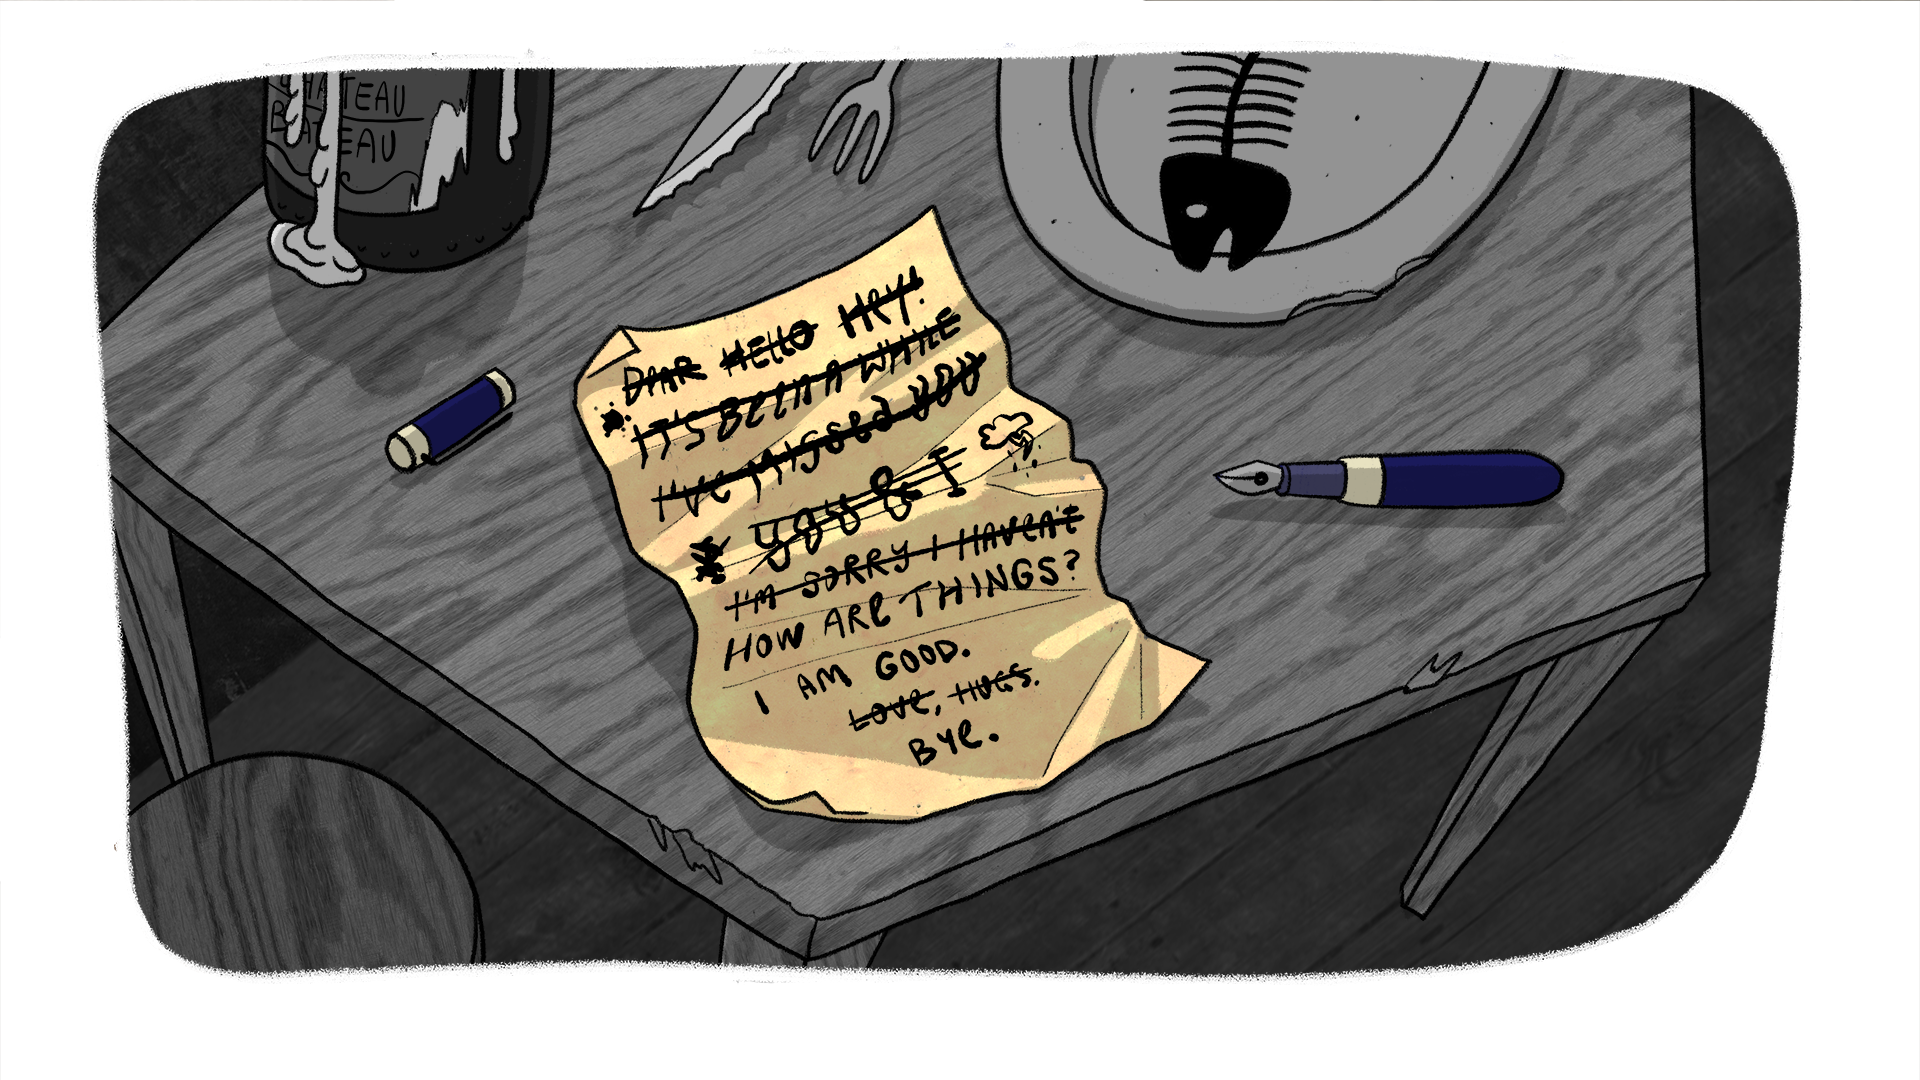 CHATEAU
BATEAU
DEAR HELLO HEY!
IT'S BEEN A WHILE
I'VE MISSED YOU
YOU & I
I'M SORRY I HAVEN'T
HOW ARE THINGS?
I AM GOOD.
LOVE, HUGS.
BYE.